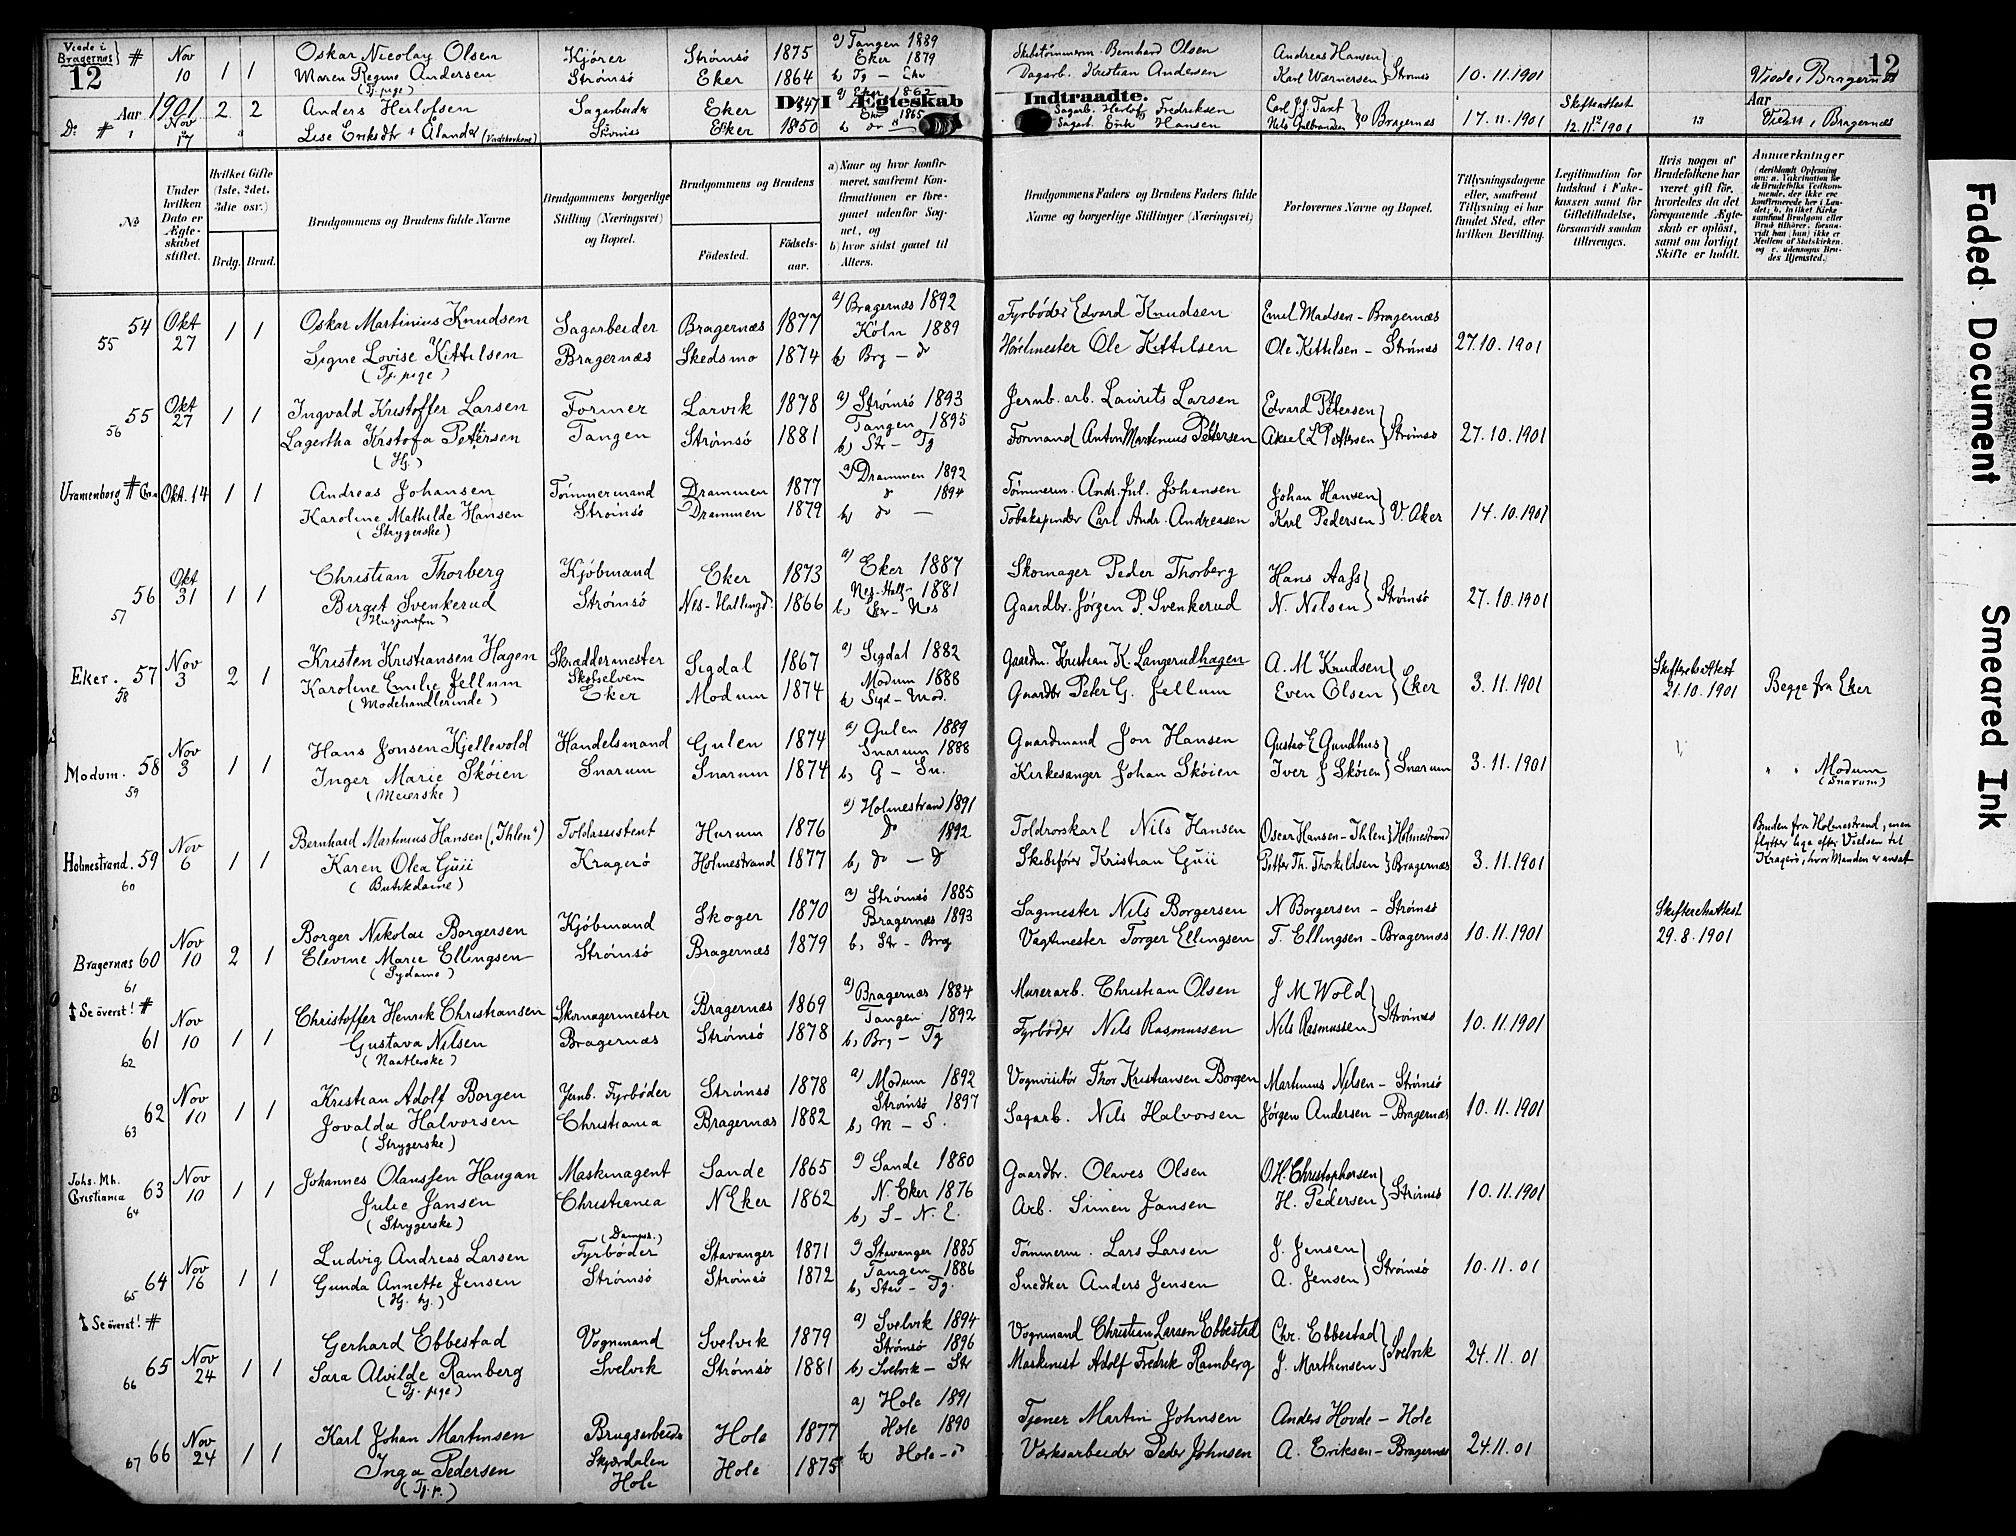 Viede i Bragernæs # Nov 10 1 1 Oskar Nicolay Olsen Kjører Strømsö 1875 a) Tangen 1889 Skibstømmerm. Bernhard Olsen Andreas Hansen
12 Maren Regine Andersen Strömsö Eker 1864 Eker 1879 Dagarb. Kristian Andersen Karl Wærnersen } Strømsö 10.11.1901 Viede i Bragernæs 12
(Tj. pige) b) Tg - Ekr
Aar 1901 2 2 Anders Herlofsen Sagarbeider Eker 1847 a) Eker 1862 Sagarb. Herlof Fredriksen Carl J.J. Taxt Skifteattest Aar
Do # Nov 17 Lise Eriksdtr Ålander (Vadskerkone) Eker 1850 Eker 1865 Sagarb. Erik Hansen Nils Gulbrandsen } Bragernæs 17.11.1901 12.11.1901 Viede i Bragernæs
De i Ægteskab Indtraadte. 12 13
No
Under hvilken Dato er Ægteskabet stiftet.
Hvilket Gifte (1ste, 2det, 3die osv.)
Brdg. Brud.
Brudgommens og Brudens fulde Navne
Brudgommens borgerlige Stilling (Næringsvei) og Bopæl.
Brudgommens og Brudens
Födested. Födsels-aar.
a) Naar og hvor konfirmeret, saafremt Konfirmationen er foregaaet udenfor Sognet, og
b) hvor sidst gaaet til Alters.
Brudgommens Faders og Brudens Faders fulde Navne og borgerlige Stillinger (Næringsvei)
Forlovernes Navne og Bopæl.
Tillysningsdagene eller, saafremt Tillysning ei har fundet Sted, efter hvilken Bevilling.
Legitimation for Indskud i Enkekassen samt for Giftetilladelse, forsaavidt saadan tiltrænges.
Hvis nogen af Brudefolkene har været gift før, hvorledes da det foregaaende Ægteskab er opløst, samt om lovligt Skifte er holdt.
Anmærkninger
(deriblandt Oplysning om: a. Vakcination for de Brudefolks Vedkommende, der ikke ere konfirmerede her i Landet; b. hvilket Kirkesamfund Brudgom eller Brud tilhører, forsaavidt han (hun) ikke er Medlem af Statskirken, og c. udensogns Brudes Hjemsted.)
54 Okt 27 1 1 Oskar Martinius Knudsen Sagarbeider Bragernæs 1877 a) Bragernæs 1892 Fyrbøder Edvard Knudsen Emil Madsen - Bragernæs
55 Signe Lovise Kittilsen Bragernæs Skedsmo 1874 Köln 1889 Ole Kittilsen Ole Kittilsen - Strømsö 27.10.1901
(Tj. pige) b) Brg - do
55 Okt 27 1 1 Ingvald Kristoffer Larsen Former Larvik 1878 a) Strømsö 1893 Jernb. arb. Laurits Larsen Edvard Petersen
56 Lagertha Kristofa Petersen Tangen Strømsö 1881 Tangen 1895 Formand Anton Martinius Pettersen Aksel L Pettersen } Strømsö 27.10.1901
(Hj.) b) Str - Tg
Uranienborg # Chra Okt. 14 1 1 Andreas Johansen Tømmermand Drammen 1877 a) Drammen 1892 Tømmerm. Andr. Jul. Johansen Johan Hansen
Karoline Mathilde Hansen Strømsö Drammen 1879 do 1894 Tobakspinder Carl Andr. Andreasen Karl Pedersen } V. Aker 14.10.1901
(Strygerske) b) do -
56 Okt 31 1 1 Christian Thorberg Kjøbmand Eker 1873 a) Eker 1887 Skomager Peder Thorberg Hans Aass
57 Birgit Svenkerud Strømsö Nes - Hallingd. 1866 Nes-Hall. 1881 Gaardbr. Jørgen P. Svenkerud N. Nilsen } Strømsö 27.10.1901
(Husjomfru) b) Ekr - Nes
Eker. 57 Nov 3 2 1 Kristen Kristiansen Hagen Skræddermester Sigdal 1867 a) Sigdal 1882 Gaardm. Kristian K. Langerudhagen A. M Knudsen Skifteretsattest
58 Karoline Emilie Jellum Skotselven Eker Modum 1874 Modum 1888 Gaardbr Peter G. Jellum Even Olsen } Eker 3.11.1901 21.10.1901 Begge fra Eker
(Modehandlerinde) b) Sigd - Mod.
Modum. 58 Nov 3 1 1 Hans Jonsen Kjellevold Handelsmand Gulen 1874 a) Gulen 1889 Gaardmand Jon Hansen Gustav E Gundhus
59 Inger Marie Skøien Snarum Snarum 1874 Snarum 1888 Kirkesanger Johan Skøien Iver J Skøien } Snarum 3.11.1901 " " Modum (Snarum)
(Meierske) b) G - Sn.
Holmestrand. 59 Nov 6 1 1 Bernhard Martinius Hansen ("Ihlen") Toldassistent Hurum 1876 a) Holmestrand 1891 Toldrorskarl Nils Hansen Oscar Hansen-Ihlen } Holmestrand
60 Karen Olea Guii Kragerö Holmestrand 1877 do 1892 Skibsfører Kristian Guii Petter Th. Thorkildsen } Bragernæs 3.11.1901
(Butikdame) b) do - do
Bruden fra Holmestrand, men flytter liga efter Vielsen til Kragerö, hvor Manden er ansat
Bragernæs 60 Nov 10 2 1 Borger Nikolai Borgersen Kjøbmand Skoger 1870 a) Strømsö 1885 Sagmester Nils Borgersen N Borgersen - Strømsö Skifteretsattest
61 Elevine Marie Ellingsen Strømsö Bragernæs 1879 Bragernæs 1893 Vagtmester Torger Ellingsen T. Ellingsen - Bragernæs 10.11.1901 29.8.1901
(Sydame) b) Str - Brg
Se överst! #
61 Nov 10 1 1 Christoffer Henrik Christiansen Skomagermester Bragernæs 1869 a) Bragernæs 1884 Murerarb. Christian Olsen J M Wold
62 Gustava Nilsen Bragernæs Strømsö 1878 Tangen 1892 Fyrbøder Nils Rasmussen Nils Rasmussen } Strømsö 10.11.1901
(Naatlerske) b) Brg - Tg
62 Nov 10 1 1 Kristian Adolf Borgen Jernb. Fyrbøder Strømsö 1878 a) Modum 1892 Vognvisitör Thor Kristiansen Borgen Martinius Nilsen - Strømsö
63 Jovalda Halvorsen Christiania Bragernæs 1882 Strømsö 1897 Sagarb. Nils Halvorsen Jørgen Andersen - Bragernæs 10.11.1901
(Strygerske) b) M - S.
Johs. Mh. Christiania 63 Nov 10 1 1 Johannes Olaussen Haugan Maskinagent Sande 1865 a) Sande 1880 Gaardbr. Olaves Olsen O. H. Christophersen
64 Julie Jansen Christiania N Eker 1862 N. Eker 1876 Arb. Simen Jansen H. Pedersen } Strømsö 10.11.1901
(Strygerske) b) S - N. E.
64 Nov 16 1 1 Ludvig Andreas Larsen (Dampsk.) Fyrbøder Stavanger 1871 a) Stavanger 1885 Tømmerm. Lars Larsen J. Jensen
65 Gunda Annette Jensen Strømsö Strømsö 1872 Tangen 1886 Snedker Anders Jensen A. Jensen } Strømsö 10.11.01
(Hj. hj.) b) Stav - Tg.
Se överst! #
65 Nov 24 1 1 Gerhard Ebbestad Vognmand Svelvik 1879 a) Svelvik 1894 Vognmand Christian Larsen Ebbestad Chr. Ebbestad
66 Sara Alvilde Ramberg Svelvik Strømsö 1881 Strømsö 1896 Maskinist Adolf Fredrik Ramberg J. Marthinsen } Svelvik 24.11.01
(Tj. pige) b) Svelvik - Str
66 Nov 24 1 1 Karl Johan Martinsen Brugsarbeider Hole 1877 a) Hole 1891 Tjener Martin Johnsen Anders Hovde - Hole
67 Inga Pedersen Skjærdalen Hole Hole 1875 Hole 1890 Værksarbeider Peder Johnsen A. Eriksen - Bragernæs 24.11.01
(Tj. p.) b) Hole - do
Faded Document
Smeared Ink